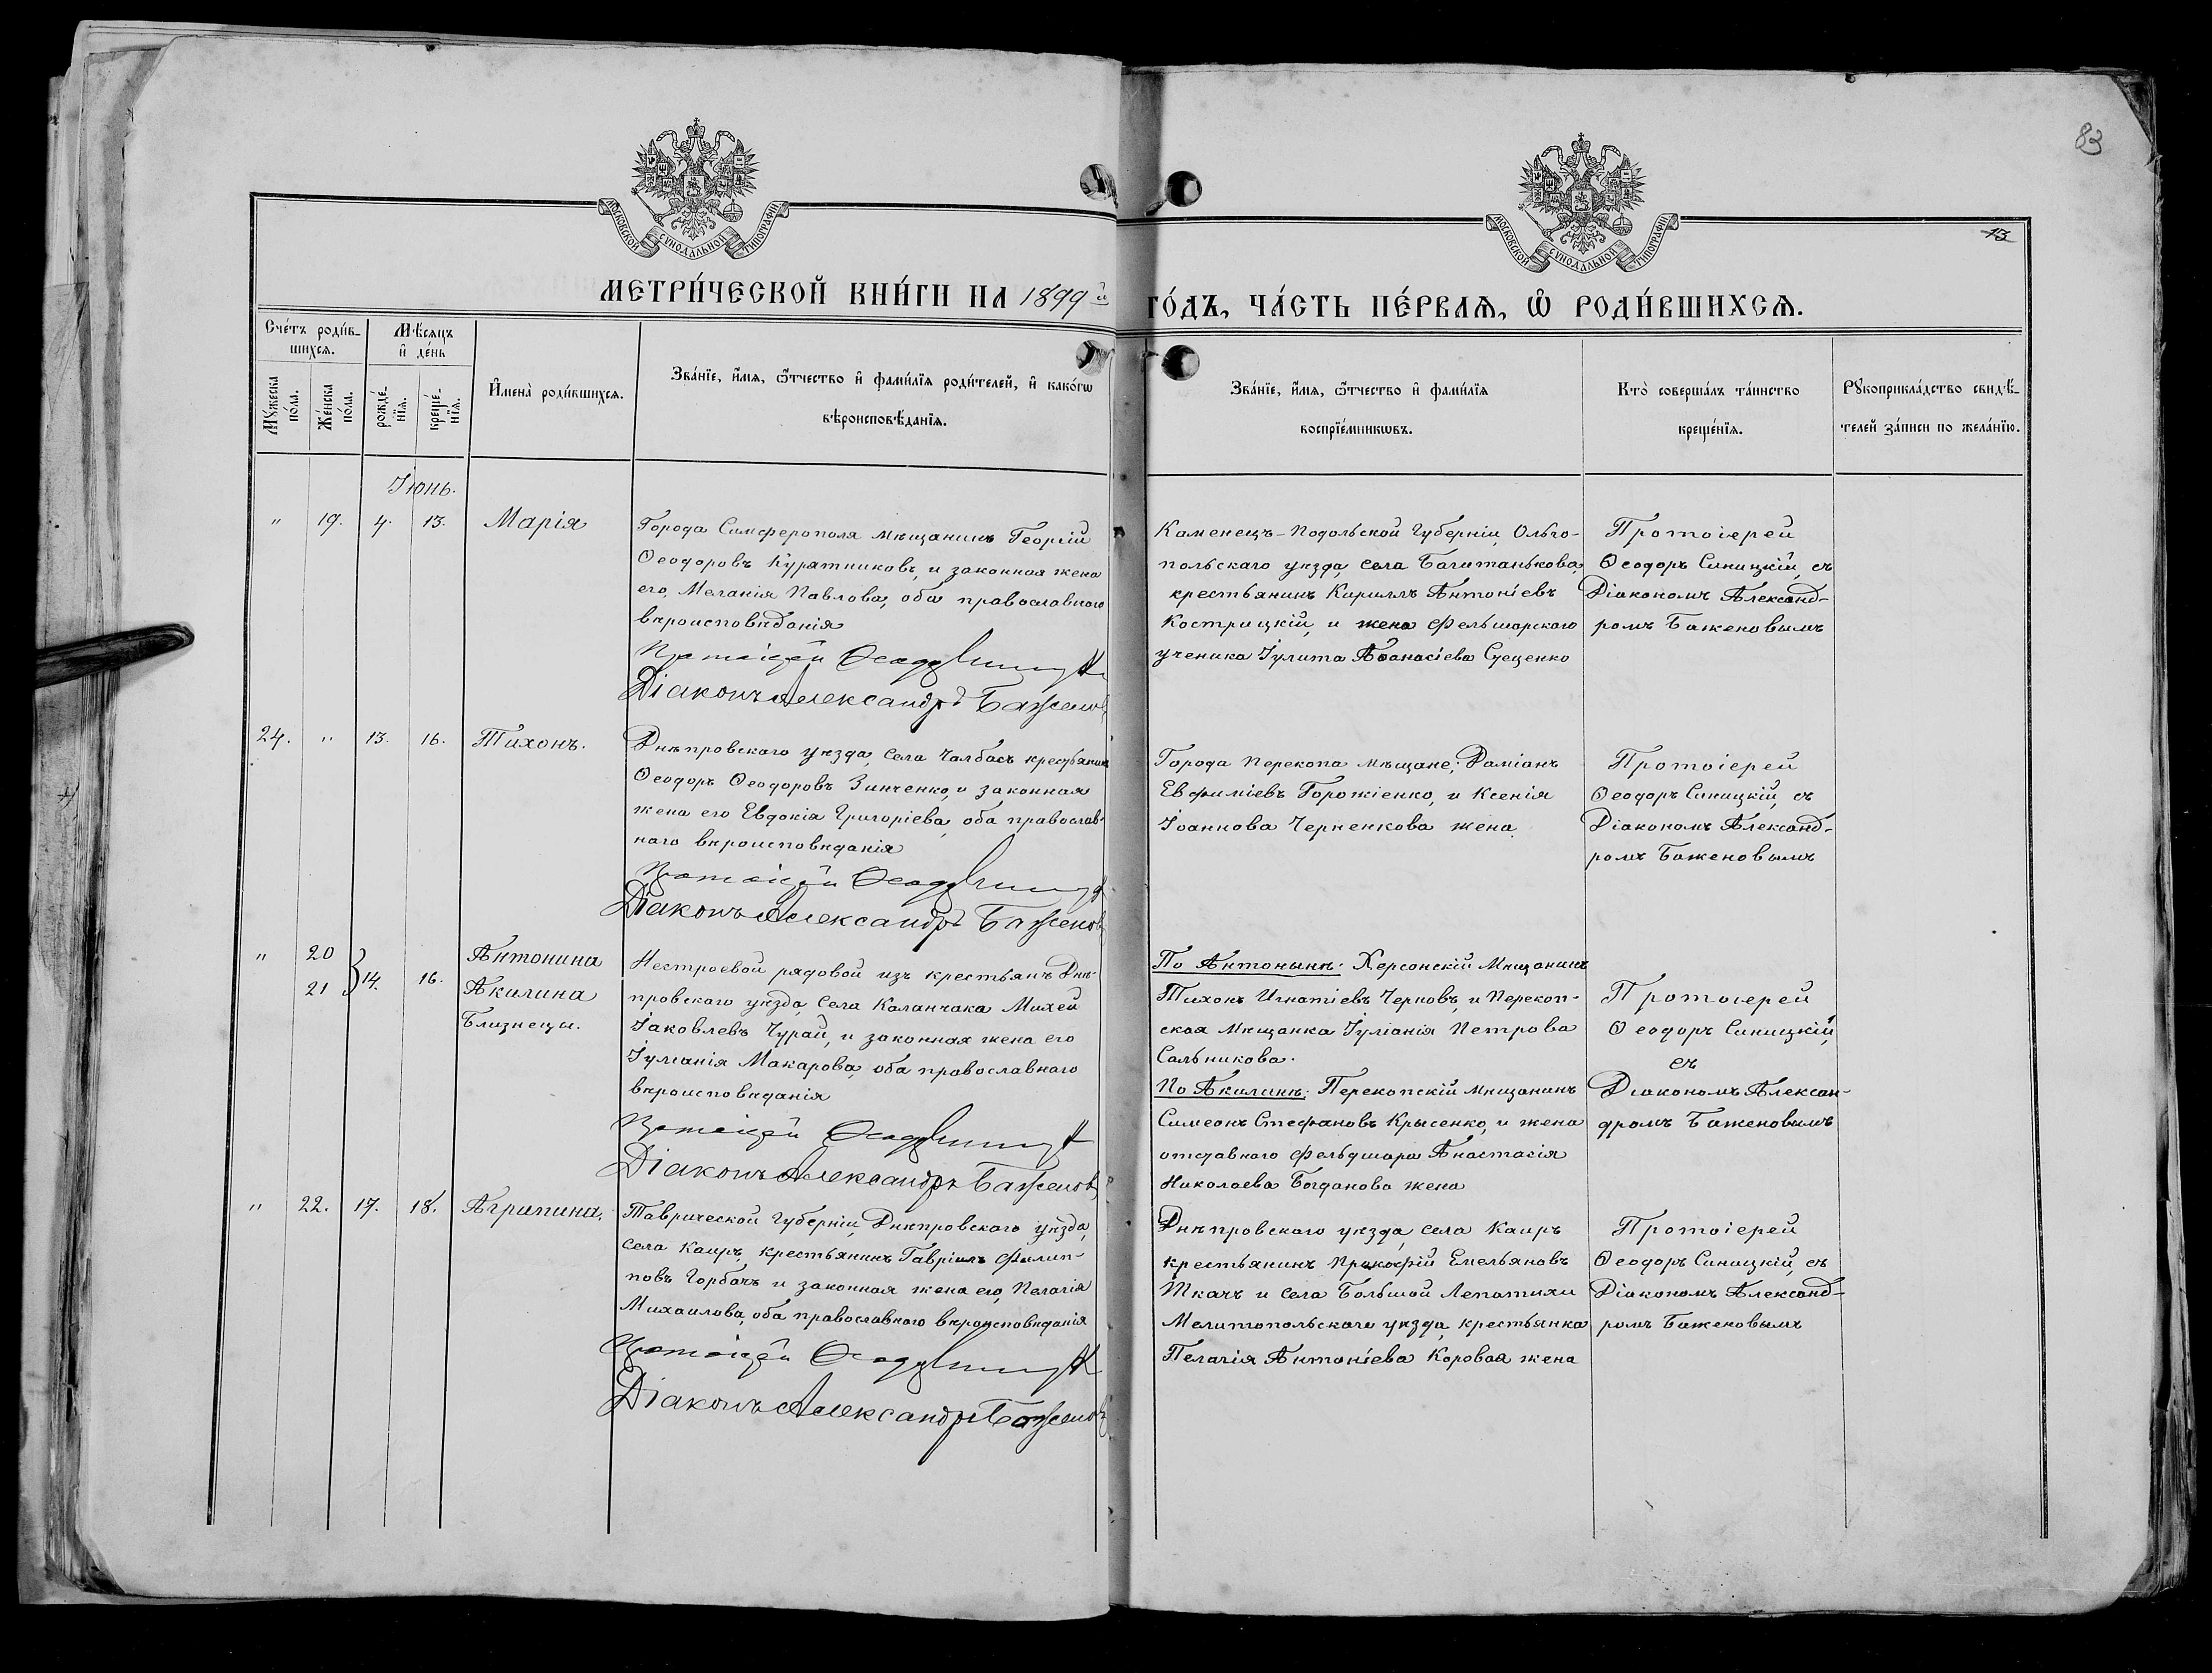 83
13
МОСКОВСКОЙ СѴНОДАЛЬНОЙ ТИПОГРАФІИ
МОСКОВСКОЙ СѴНОДАЛЬНОЙ ТИПОГРАФІИ
МЕТРИ́ЧЕСКОЙ КНИ́ГИ НА 1899й ГО́ДЪ, ЧА́СТЬ ПЕ́РВАѦ, Ѽ РОДИ́ВШИХСѦ.
Сче́тъ роди́вшихсѧ.
Мꙋ́жеска по́ла.
Же́нска по́ла.
Мѣ́сѧцъ и҆ де́нь
рожде́нїѧ.
креще́нїѧ.
И҆мена̀ роди́вшихсѧ.
Зва́нїе, и҆́мѧ, ѻ҆́тчество и҆ фами́лїѧ роди́телей, и҆ како́гѡ
вѣроисповѣ́данїѧ.
Зва́нїе, и҆́мѧ, ѻ҆́тчество и҆ фами́лїѧ
воспрїе́мникѡвъ.
Кто̀ соверша́лъ та́инство
креще́нїѧ.
Рꙋкоприкла́дство свидѣ́-
телей за́писи по жела́нїю.
Іюнь.
" 19. 4. 13. Марія
Города Симферополя мѣщанинъ Георгій
Ѳеодоровъ Курятниковъ, и законная жена
его, Меланія Павлова, оба православнаго
вѣроисповѣданія
Протоіерей Ѳеодоръ Синицкій
Діаконъ Александръ Баженовъ
Каменецъ-Подольской Губерніи, Ольго-
польскаго уѣзда, села
крестьянинъ Кириллъ Антоніевъ
Кострицкій, и жена фельшарскаго
ученика Іулита Аѳанасіева
Протоіерей
Ѳеодоръ Синицкій, съ
Діакономъ Александ-
ромъ Баженовымъ
24. " 13. 16. Тихонъ.
Днѣпровскаго уѣзда, села Чалбасъ крестьянинъ
Ѳеодоръ Ѳеодоровъ Зинченко, и законная
жена его Евдокія Григоріева, оба православ-
наго вѣроисповѣданія
Протоіерей Ѳеодоръ Синицкій
Діаконъ Александръ Баженовъ
Города Перекопа мѣщане: Даміанъ
Евфиміевъ Горожіенко, и Ксенія
Іоаннова Черненкова жена.
Протоіерей
Ѳеодоръ Синицкій, съ
Діакономъ Александ-
ромъ Баженовымъ
" 20 21 14. 16. Антонина
Акилина
Близнецы.
Нестроевой рядовой изъ крестьянъ Днѣ-
провскаго уѣзда, села Каланчака Михей
Іаковлевъ Чурай, и законная жена его
Іуліанія Макарова, оба православнаго
вѣроисповѣданія
Протоіерей Ѳеодоръ Синицкій
Діаконъ Александръ Баженовъ
По Антонинѣ: Херсонскій Мѣщанинъ
Тихонъ Игнатіевъ Черновъ, и Перекоп-
ская Мѣщанка Іуліанія Петрова
Сальникова.
По Акилинѣ: Перекопскій мѣщанинъ
Симеонъ Стефановъ Крысенко, и жена
отставного фельдшара Анастасія
Николаева Богданова жена
Протоіерей
Ѳеодоръ Синицкій,
съ
Діакономъ Алексан-
дромъ Баженовымъ
" 22. 17. 18. Агрипина.
Таврической Губерніи, Днѣпровскаго уѣзда,
села Каиръ, крестьянинъ Гавріилъ Филип-
повъ Горбачъ и законная жена его, Пелагія
Михаилова, оба православнаго вѣроисповѣданія
Протоіерей Ѳеодоръ Синицкій
Діаконъ Александръ Баженовъ
Днѣпровскаго уѣзда, села Каиръ
крестьянинъ Прокофій Емельяновъ
Ткачъ и села Большой Лепатихи
Мелитопольскаго уѣзда, крестьянка
Пелагія Антоніева Коровая жена
Протоіерей
Ѳеодоръ Синицкій, съ
Діакономъ Александ-
ромъ Баженовымъ